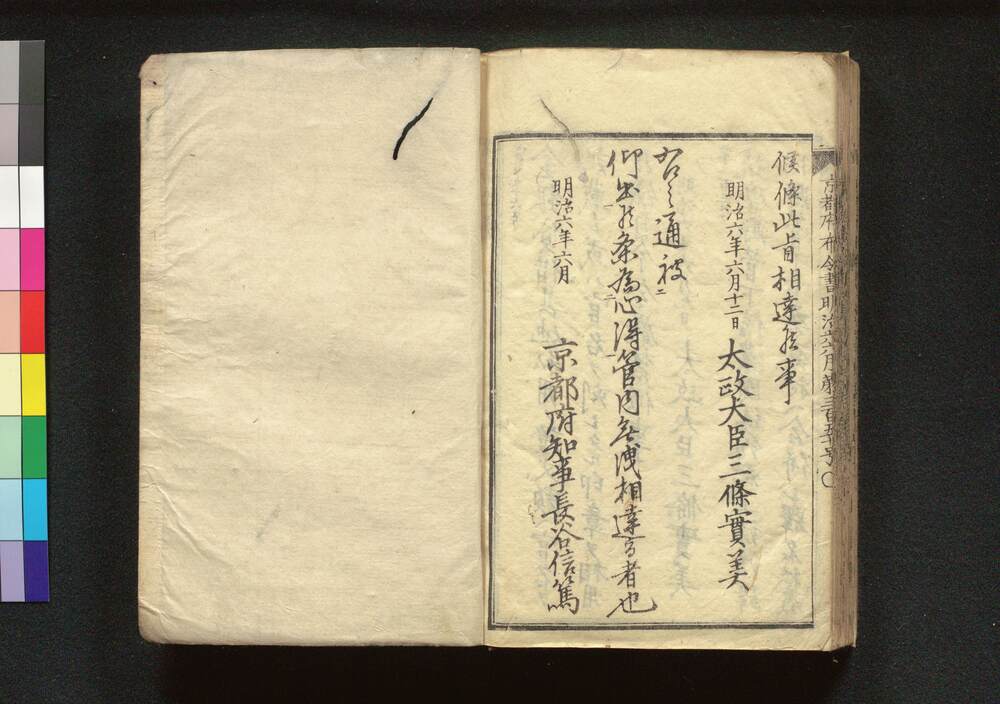 京都府布令書明治六年六月第二百五十号〇
候條此旨相達候事
明治六年六月十二日 太政大臣三條實美
右之通被
仰出候条為心得管内無洩相達る者也
明治六年六月 京都府知事長谷信篤